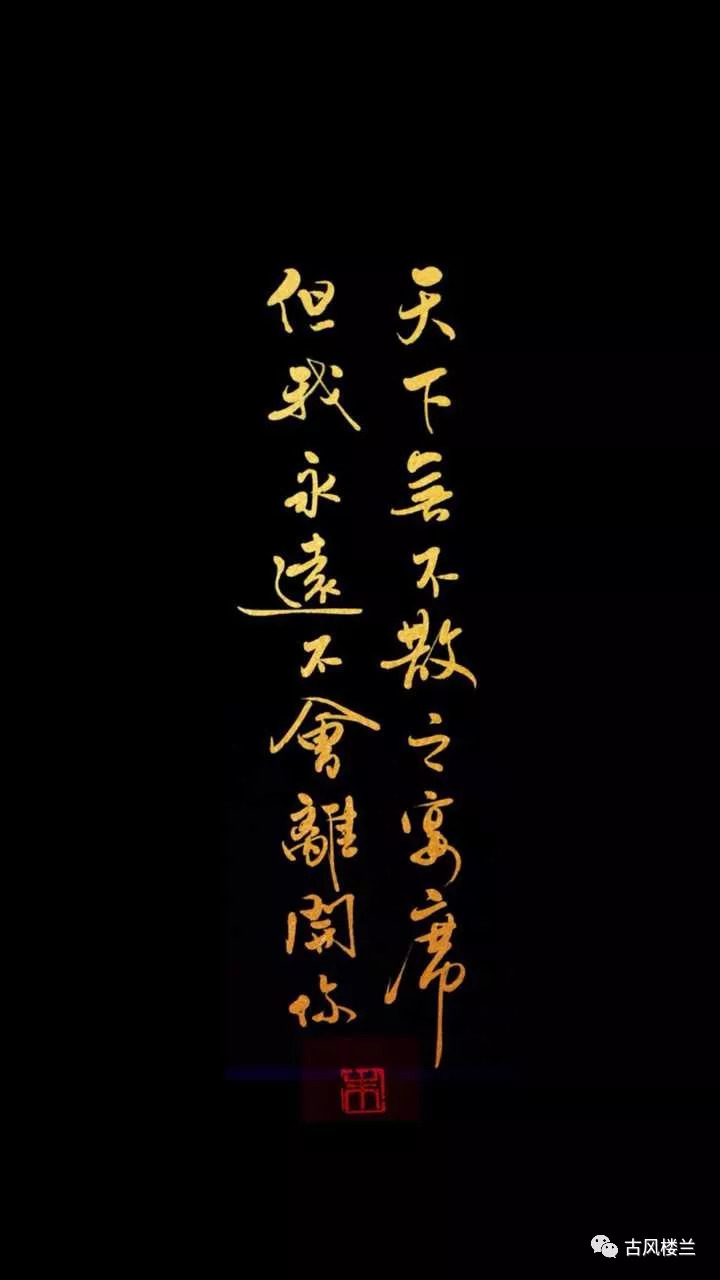 天下無不散之宴席
但我永遠不會離開你
古风楼兰